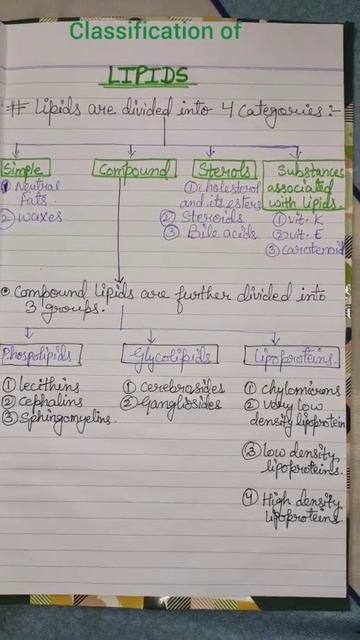 Classification of
LIPIDS
# Lipids are divided into 4 categories:-
Simple
① Neutral
Fats.
② waxes
Compound
Sterols
① cholesterol
and its esters
② Steroids
③ Bile acids
Substances
associated
with Lipids.
① vit. K
② vit. E
③ Carotenoid
• Compound Lipids are further divided into
3 groups.
Phospolipids
① lecithins
② cephalins
③ Sphingomyelins.
Glycolipids
① cerebrosides
② Gangliosides
Lipoproteins.
① chylomicrons
② Very low
density lipoprotein
③ Low density
lipoproteins.
④ High density
lipoproteins.